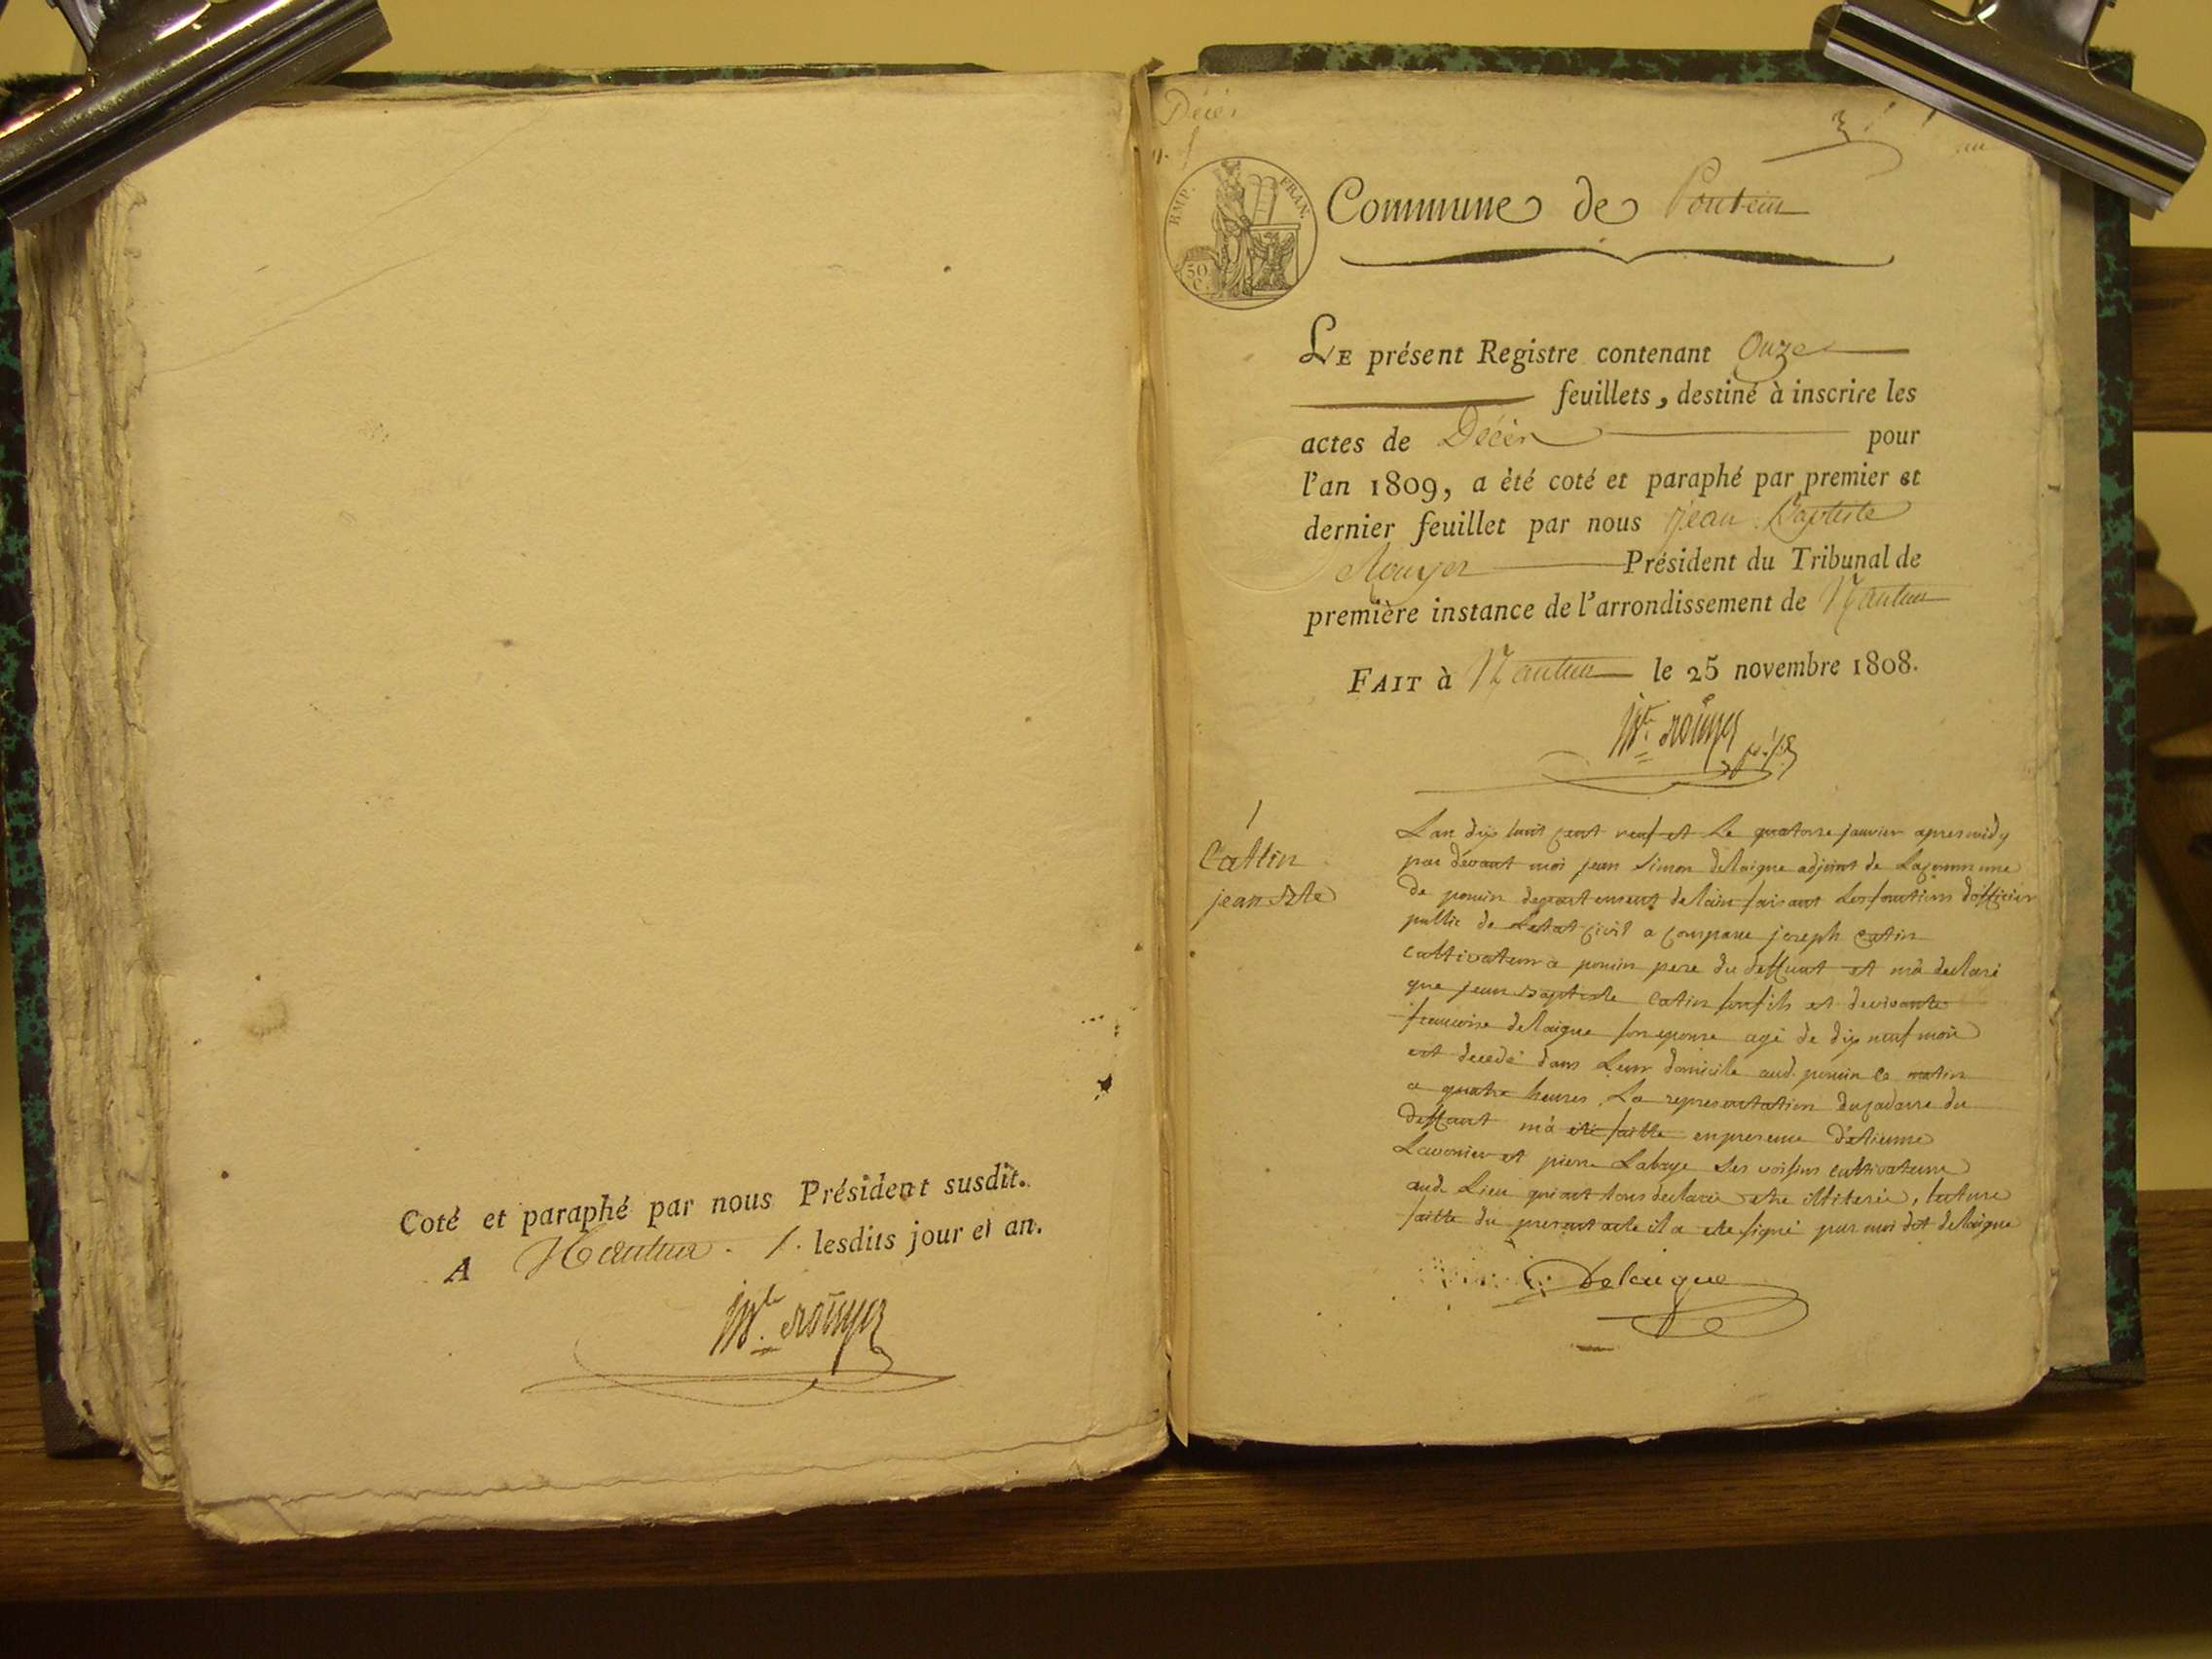 Coté et paraphé par nous Président susdit.
A Nantua . /. lesdits jour et an.
JBte. Rouyer
Décès
3
EMP. FRAN.
50 C.
Commune de Poncin
LE présent Registre contenant Onze
feuillets, destiné à inscrire les
actes de Décès pour
l'an 1809, a été coté et paraphé par premier et
dernier feuillet par nous Jean Baptiste
Rouyer Président du Tribunal de
première instance de l'arrondissement de Nantua
FAIT à Nantua le 25 novembre 1808.
JBte. Rouyer
1
Cattin
jean Bte
Lan dix huit cent neuf et Le quatorse janvier apres midy
par devant moi jean Simon delaigue adjoint de La commune
De poncin departement de lain faisant Les fonctions dofficier
public de Letat civil a comparu joseph Catin
Cultivateur a poncin pere du deffunt et m'a declaré
que jean Baptiste Catin son fils et de vivante
francoise delaigue son epouse agé de dix neuf mois
est decedé dans Leur domicile aud. poncin ce matin
a quatre heures. La representation du cadavre du
deffunt m'a eté faitte en presence d'etienne
et pierre Ses voisins cultivateurs
aud. Lieu qui ont tous declaré etre illiteré, lecture
faitte du present acte il a ete signé par moi dit delaigue
Delaigue